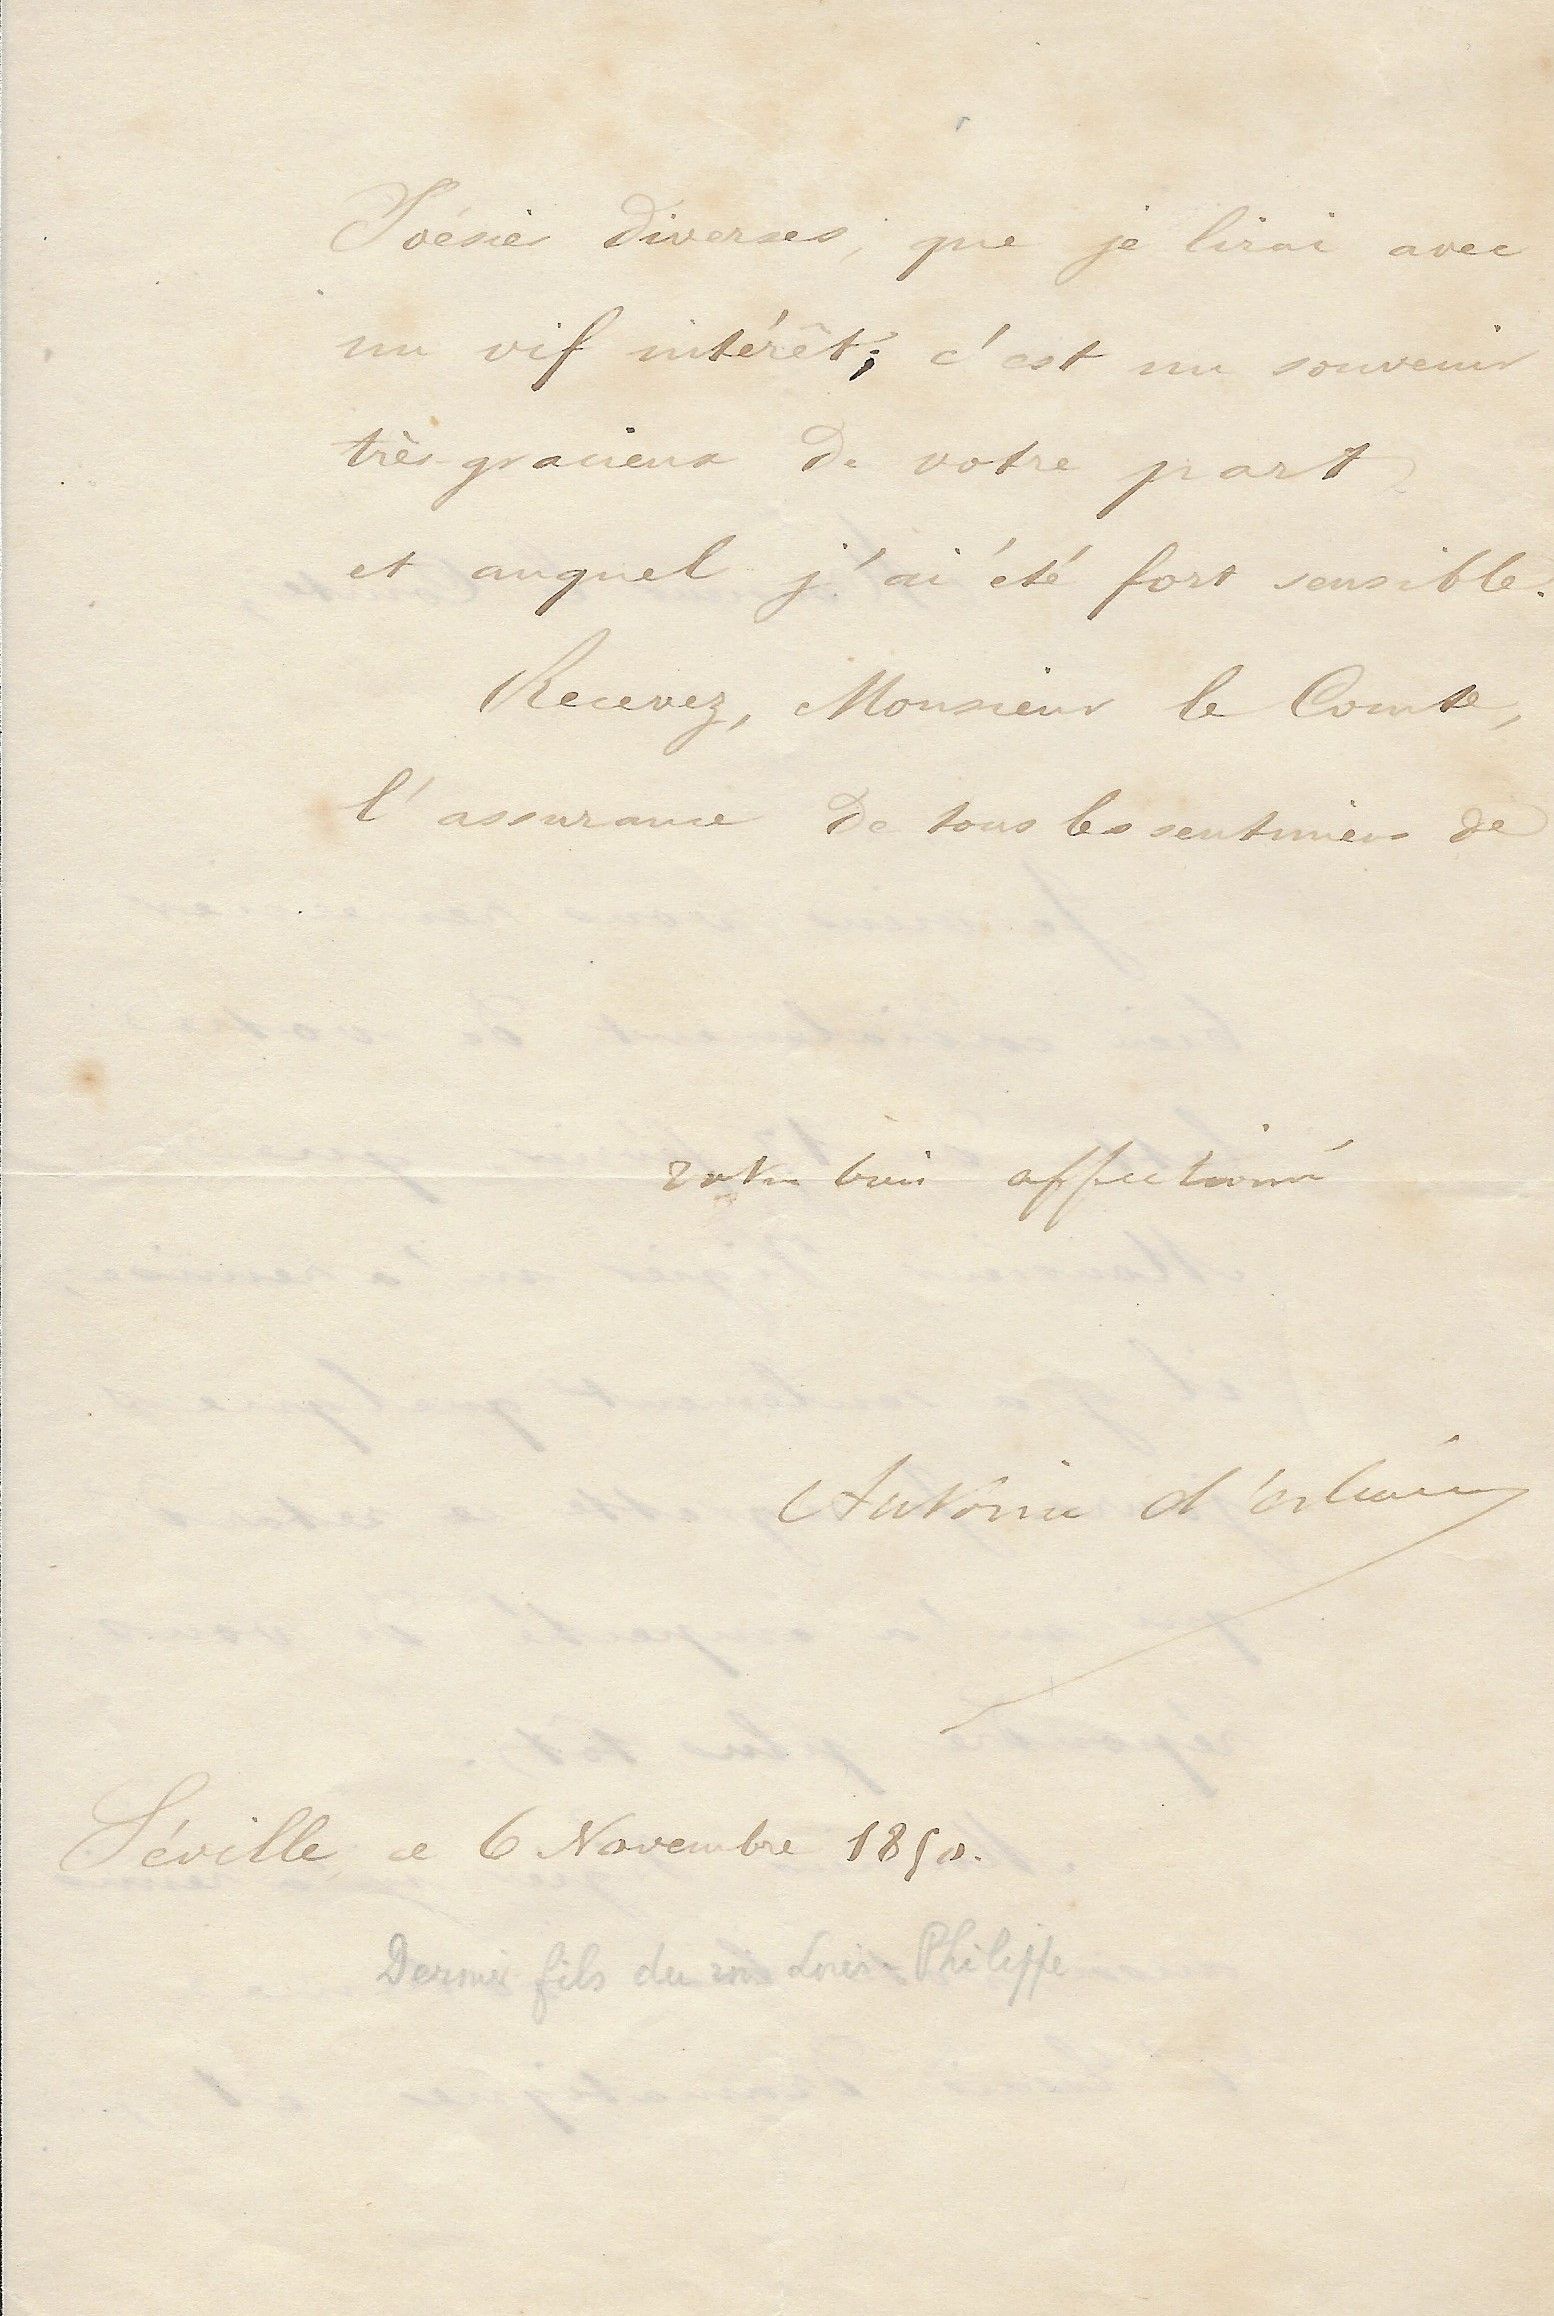 Poésies diverses, que je lirai avec
un vif intérêt; c'est un souvenir
très-gracieux de votre part
et auquel j'ai été fort sensible.
Recevez, Monsieur le Comte,
l'assurance de tous les sentimens de
votre bien affectionné
Antoine d'Orléans
Séville, ce 6 Novembre 1850.
Dernier fils du roi Louis-Philippe